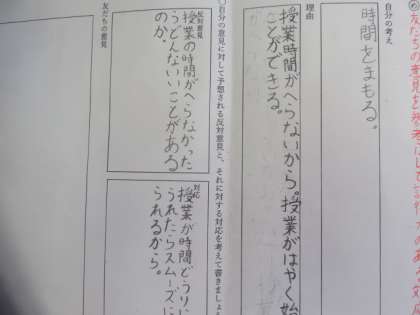 自分の考え
時間をまもる。
理由
授業時間がへらないから。授業がはやく始
ことができる。
○自分の意見に対して予想される反対意見と、それに対する対応を考えて書きましょ
反対意見
授業の時間がへらなかった
らどんないいことがある
のか。
対応
授業が時間どうりに
うれたらスムーズに
られるから。
友だちの意見